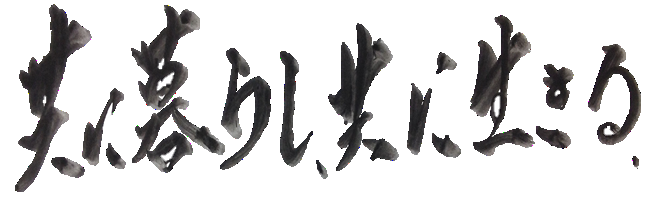 共に暮らし、共に生きる.